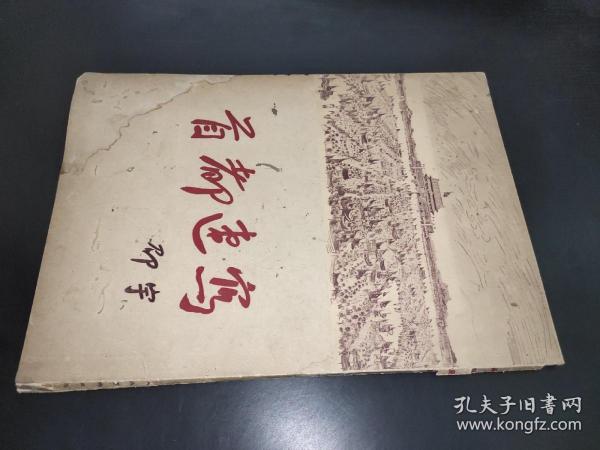 首都速写
邵宇
孔夫子旧书网
www.kongfz.com